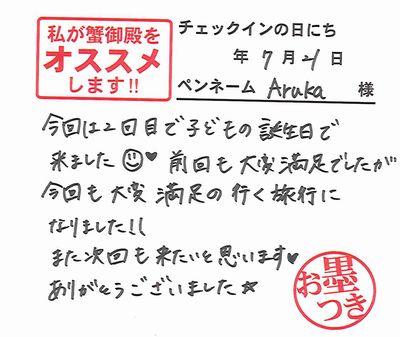 私が蟹御殿を
オススメ
します!!
チェックインの日にち
年 7月21日
ペンネーム Aruka 様
今回は2回目で子どもの誕生日で
来ました☺♥ 前回も大変満足でしたが
今回も大変満足の行く旅行に
なりました!!
また次回も来たいと思います♥
ありがとうございました☆
お墨
つき